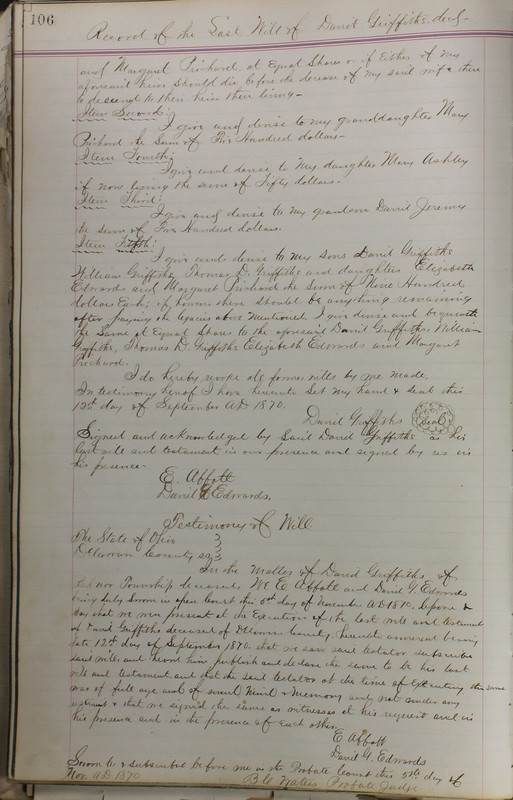 106
Record of the Last Will of David Griffiths decd
and Margaret Prichard at Equal Shares or if Either of my
aforesaid heirs should die before the decease of my said wife there
to descend to their heirs then living
Item Second:
I give and devise to my granddaughter Mary
Prichard the Sum of Five Hundred dollars
Item Fourth:
I give and devise to My daughter Mary Ashley
if now living the sum of Fifty dollars
Item Third:
I give and devise to my grandson David Jeremy
the sum of Five Hundred dollars.
Item Fifth:
I give and devise to my Sons David Griffiths
William Griffiths, Thomas D. Griffiths and daughters Elizabeth
Edwards and Margaret Prichard the Sum of Nine Hundred
dollars Each; if however there should be anything remaining
after paying the legacies above mentioned I give devise and bequeath
the Same at Equal Shares to the aforesaid David Griffiths, William
Griffiths, Thomas D. Griffiths Elizabeth Edwards and Margaret
Prichard.
I do hereby revoke all former wills by me made.
In testimony hereof I have hereunto Set my hand & seal this
12th day of September AD 1870.
David Griffiths Seal
Signed and acknowledged by Said David Griffiths as his
last will and testament in our presence and signed by us in
his presence
E. Abbott
David G Edwards.
Testimony of Will
The State of Ohio
County ss
In the Matter of David Griffiths of
Township deceased, We E. Abbott and David G. Edwards
being duly Sworn in open Court this 5th day of November AD 1870, depose &
say that we were present at the Execution of the last will and testament
of David Griffiths deceased of County, hereunto annexed bearing
date 12th day of September 1870 that we saw said testator subscribe
said will and heard him publish and declare the same to be his last
will and testament and that the said testator at the time of Executing the same
was of full age and of sound Mind & Memory and not under any
restraint & that we signed the same as witnesses at his request and in
his presence and in the presence of Each other
E Abbott
David G. Edwards
Sworn to & subscribed before me in the Probate Court this 5th day of
Nov. AD 1870
B. C. Waters Probate Judge